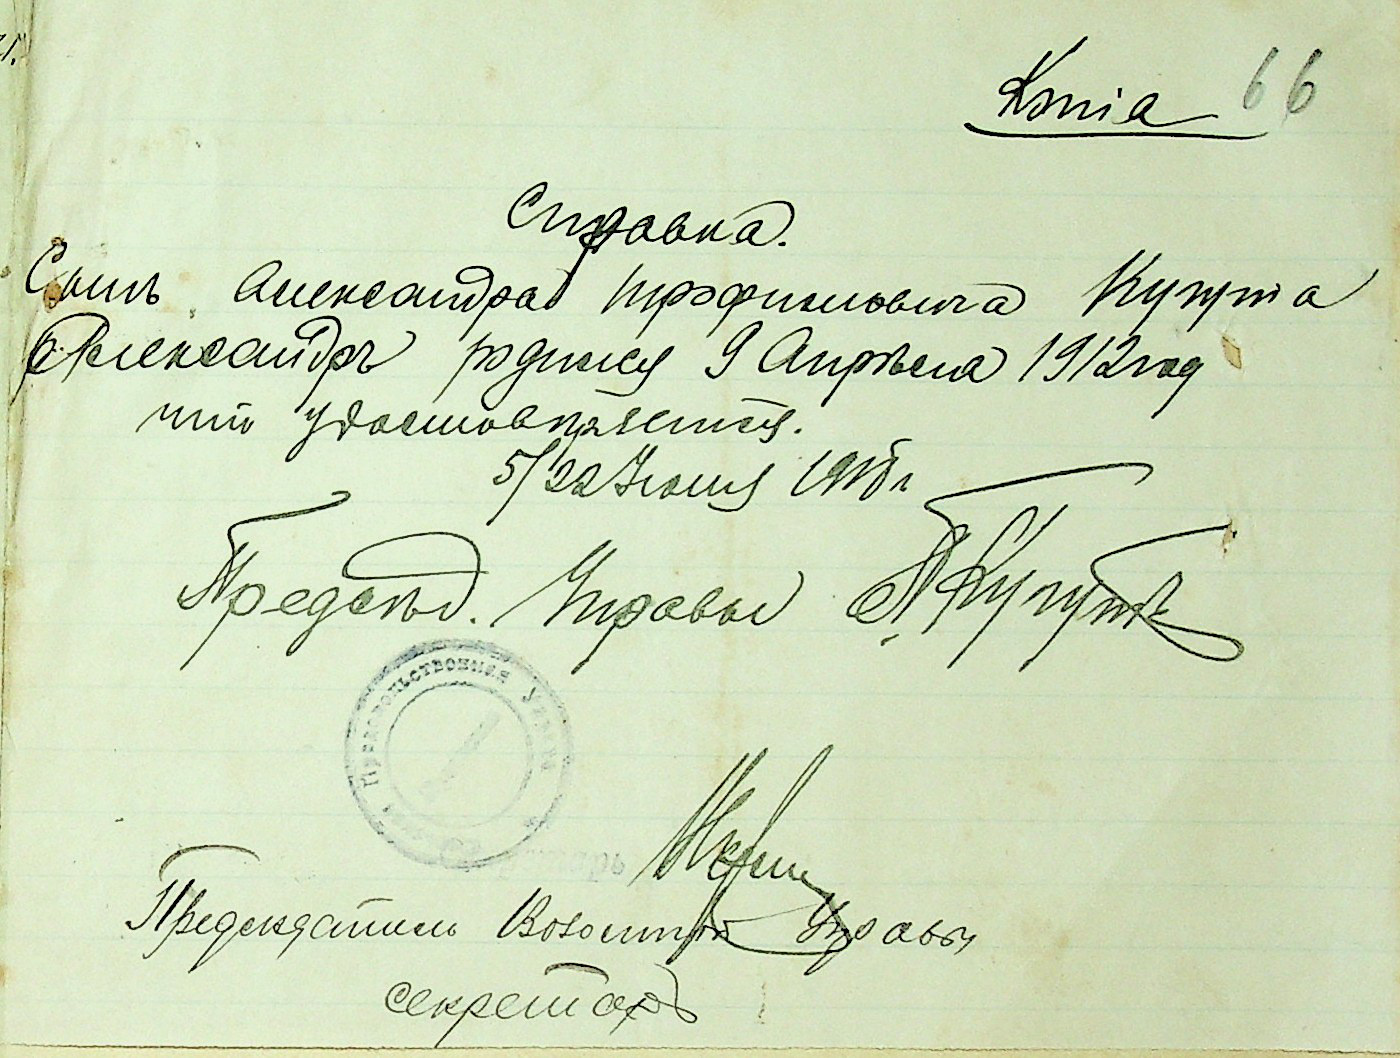 Копія 66
Справка.
Сынъ Александра Трофимовича Купта
Александръ родился 9 Апрѣля 1912 год
что удостовѣряется.
5/22 Іюня 191 г
Предсѣд. Управы
Продовольственная Управа
Предсѣдатель Волостной Управы
секретарь